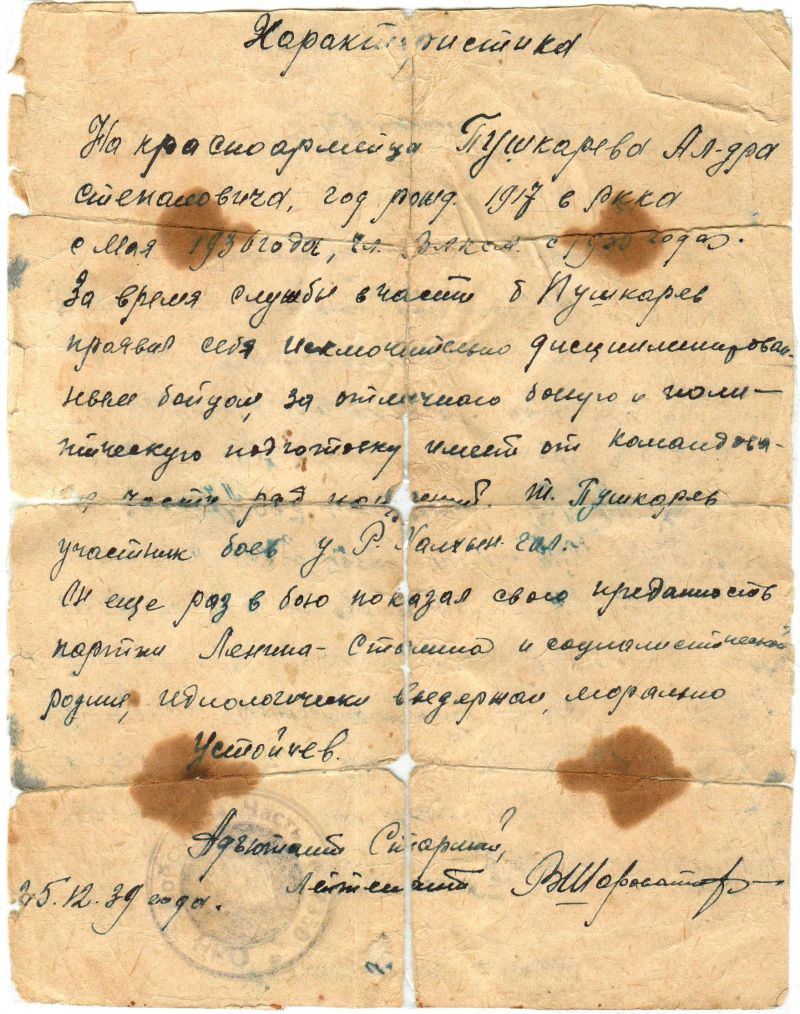 Характеристика
На красноармейца Пушкарева Ал-дра
Степановича, год рожд. 1917 в РККА
с мая 1936 года, чл. ВЛКСМ с года.
За время службы в части б Пушкарев
проявил себя исключительно дисциплинирован-
ным бойцом, за отличную боевую и поли-
тическую подготовку имеет от командова-
я части ряд т. Пушкарев
участник боев у Р. Халхын-гол.
И еще раз в бою показал свою преданность
партии Ленина-Сталина и социалистической
родине, идиологически выдержан, морально
Устойчев.
Часть
Адъютант Старший,
Лейтенант
25.12.39 года.